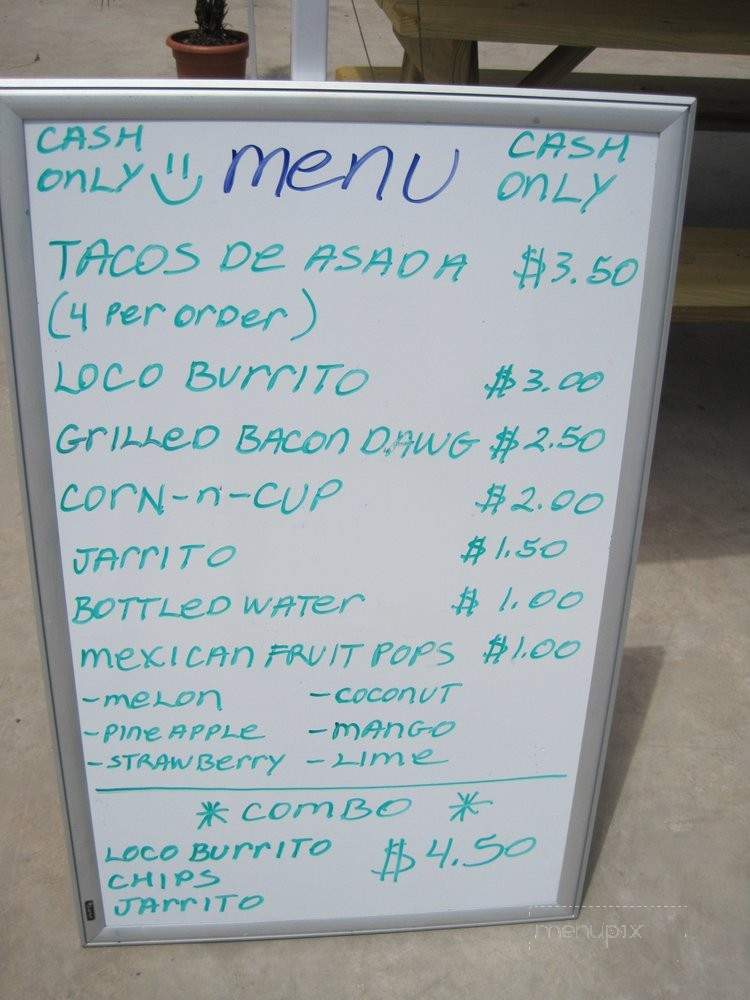 CASH ONLY
menu
CASH ONLY
TACOS De ASADA $3.50
(4 Per OrDer)
LOCO BUrrITO $3.00
GrILLeD BACOn DAWG $2.50
COrN-n-CUP $2.00
JArrITO $1.50
BOTTLeD WATer $1.00
mexICAn FRUIT POPS $1.00
-meLOn -COCOnUT
-PIne APPLe -mANGO
-STRAWBerry -LIme
* COmBO *
LOCO BUrrITO $4.50
CHIPS
JArrITO
menupix